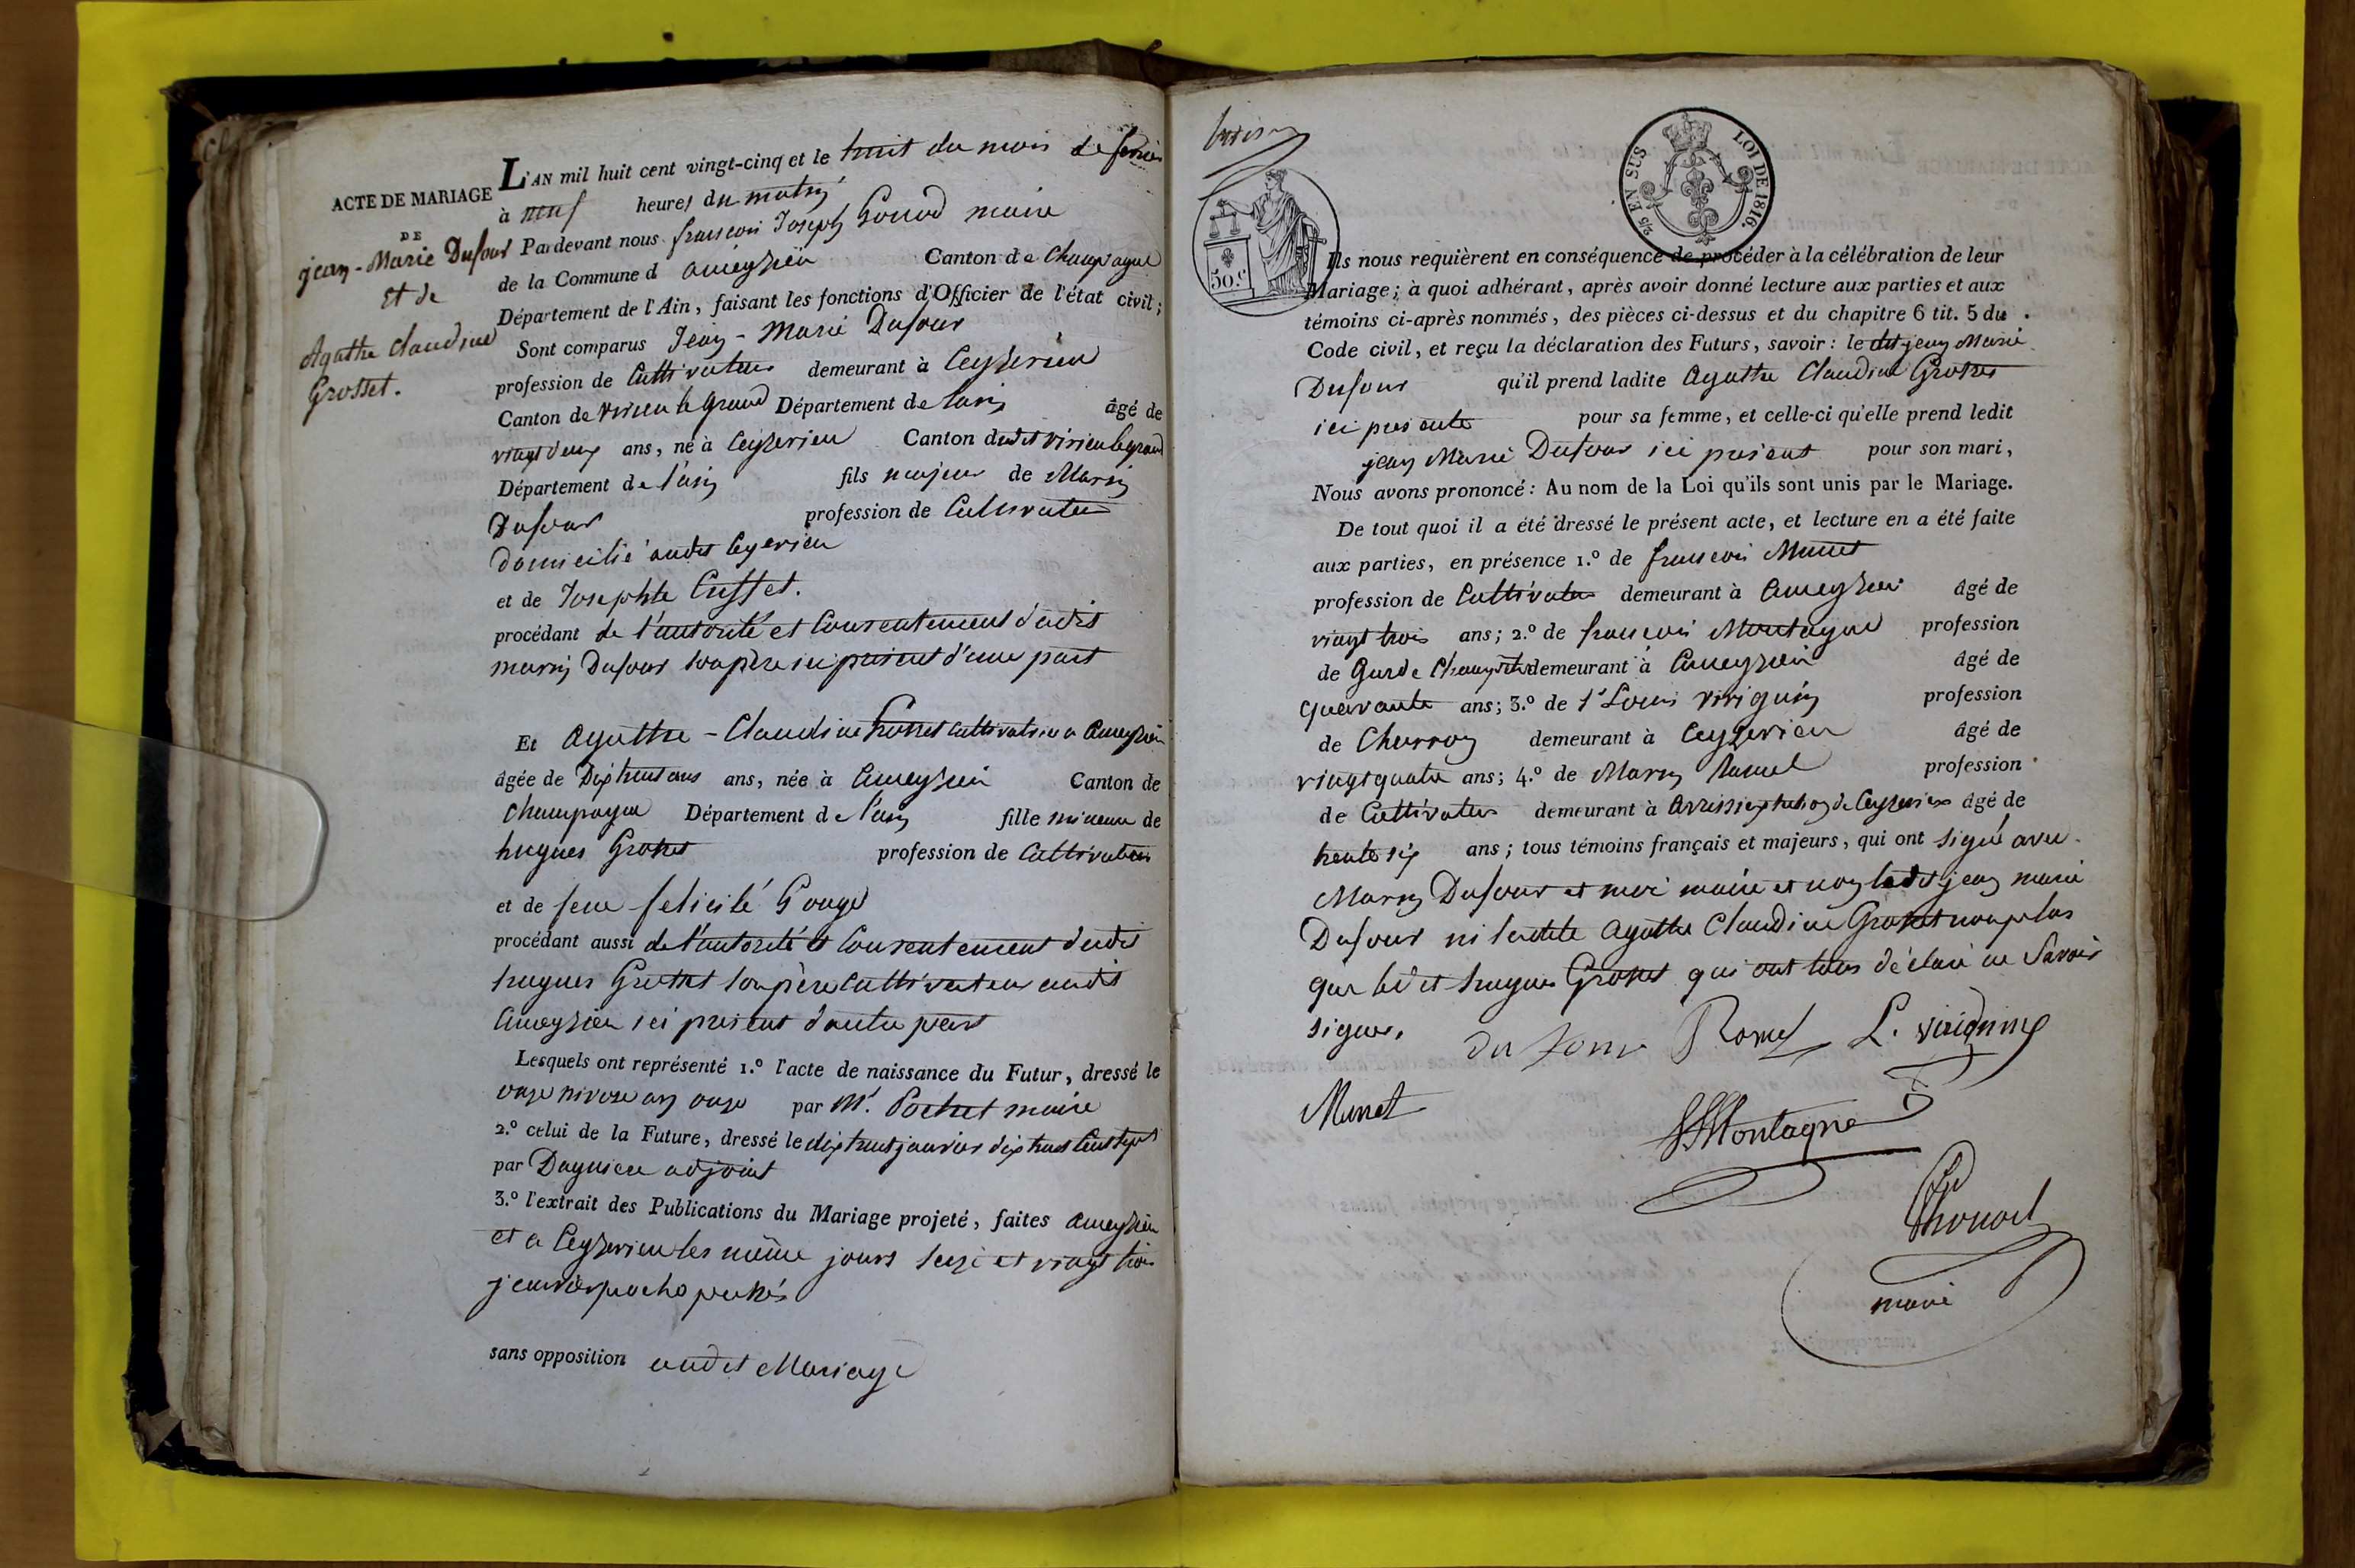 ACTE DE MARIAGE
DE
jean-Marie Dufour
et de
Agathe Claudine
Grosset.
L'AN mil huit cent vingt-cinq et le huit du mois de fevrier
à neuf heures du matin
Pardevant nous francois Joseph Gonod maire
de la Commune d ameyzieu Canton de Champagne
Département de l'Ain, faisant les fonctions d'Officier de l'état civil;
Sont comparus Jean-Marie Dufour
profession de Cultivateur demeurant à Ceyzerieu
Canton de virieu le grand Département de l'ain âgé de
vingt deux ans, né à Ceyzerieu Canton dudit virieu le grand
Département de l'ain fils majeur de Marin
Dufour profession de Cultivateur
domicilié audit Ceyzerieu
et de Josephte Cusset.
procédant de l'autorité et Consentement dudit
marin Dufour son père ici present d'une part
Et Agathe-Claudine Grosset Cultivatrice a Ameyzieu
âgée de Dix huit ans ans, née à Ameyzieu Canton de
Champagne Département de l'ain fille mineure de
hugues Grosset profession de Cultivateur
et de feue felicité Gouge
procédant aussi de l'autorité et Consentement dudit
hugues Grosset son père Cultivateur audit
Ameyzieu ici present d'autre part
Lesquels ont représenté 1.º l'acte de naissance du Futur, dressé le
onze nivose an onze par Mr. Pochet maire
2.º celui de la Future, dressé le dix huit janvier dix huit Cent sept
par Dagnieu adjoint
3.º l'extrait des Publications du Mariage projeté, faites Ameyzieu
et a Ceyzerieu les même jours seize et vingt trois
janvier proche passés
sans opposition audit Mariage
50.c
2/5 EN SUS
LOI DE 1816.
Ils nous requièrent en conséquence de procéder à la célébration de leur
Mariage; à quoi adhérant, après avoir donné lecture aux parties et aux
témoins ci-après nommés, des pièces ci-dessus et du chapitre 6 tit. 5 du
Code civil, et reçu la déclaration des Futurs, savoir: le dit jean Marie
Dufour qu'il prend ladite Agathe Claudine Grosset
ici presente pour sa femme, et celle-ci qu'elle prend ledit
jean Marie Dufour ici present pour son mari,
Nous avons prononcé: Au nom de la Loi qu'ils sont unis par le Mariage.
De tout quoi il a été dressé le présent acte, et lecture en a été faite
aux parties, en présence 1.º de francois Munet
profession de Cultivateur demeurant à Ameyzieu âgé de
vingt trois ans; 2.º de francois Montagne profession
de Garde Champetre demeurant à Ameyzieu âgé de
quarante ans; 3.º de Sr Louis virignin profession
de Charron demeurant à Ceyzerieu âgé de
vingt quatre ans; 4.º de Marin Ramel profession
de Cultivateur demeurant à de Ceyzerieu âgé de
trente six ans; tous témoins français et majeurs, qui ont signé avec
Marin Dufour et moi maire et non ledit jean marie
Dufour ni ladite Agathe Claudine Grosset non plus
que ledit hugues Grosset qui ont tous déclaré ne Savoir
signer.
du four Ramel L. virignin
Munet
Montagne
Gonod
maire